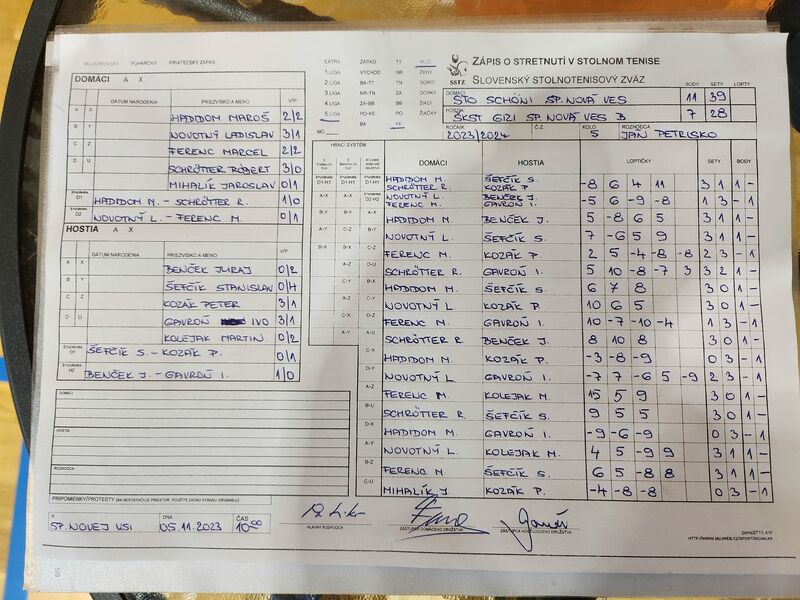 MAJSTROVSKÝ POHÁROVÝ PRIATEĽSKÝ ZÁPAS
DOMÁCI A X
DÁTUM NARODENIA PRIEZVISKO A MENO V/P
A X HADIDOM MAROŠ 2/2
B Y NOVOTNÝ LADISLAV 3/1
C Z FERENC MARCEL 2/2
D U SCHRÖTTER RÓBERT 3/0
MIHALÍK JAROSLAV 0/1
ŠTVORHRA D1 HADIDOM M. - SCHRÖTTER R. 1/0
ŠTVORHRA D2 NOVOTNÝ L. - FERENC M. 0/1
HOSTIA A X
DÁTUM NARODENIA PRIEZVISKO A MENO V/P
A X BENČEK JURAJ 0/2
B Y ŠEFČÍK STANISLAV 0/4
C Z KOZÁK PETER 3/1
D U GAVROŇ IVO 3/1
KOLEJAK MARTIN 0/2
ŠTVORHRA D1 ŠEFČÍK S. - KOZÁK P. 0/1
ŠTVORHRA H2 BENČEK J. - GAVROŇ I. 1/0
DOMÁCI
HOSTIA
ROZHODCA
PRIPOMIENKY/PROTESTY (AK NEPOSTAČUJE PRIESTOR, POUŽITE ZADNÚ STRANU ORIGINÁLU)
V SP. NOVEJ VSI DŇA 05.11.2023 ČAS 10 00
EXTRA ZÁPAD TT MUŽI
1.LIGA VÝCHOD NR ŽENY
2.LIGA BA-TT TN DORCI
3.LIGA NR-TN ZA DORKY
4.LIGA ZA-BB BB ŽIACI
5.LIGA PO-KE PO ŽIAČKY
MO BA KE
SSTZ
ZÁPIS O STRETNUTÍ V STOLNOM TENISE
SLOVENSKÝ STOLNOTENISOVÝ ZVÄZ
BODY SETY LOPTY
DOMÁCI STO SCHÖNI SP. NOVÁ VES 11 39
HOSTIA ŠKST GIZI SP. NOVÁ VES B 7 28
ROČNÍK 2023/2024 Č.Z. KOLO 5 ROZHODCA JÁN PETRISKO
HRACÍ SYSTÉM
DOMÁCI HOSTIA LOPTIČKY SETY BODY
HADIDOM M. SCHRÖTTER R. ŠEFČÍK S. KOZÁK P. -8 6 4 11 3 1 1 -
NOVOTNÝ L. FERENC M. BENČEK J. GAVROŇ I. -5 6 -9 -8 1 3 - 1
HADIDOM M BENČEK J. 5 -8 6 5 3 1 1 -
NOVOTNÝ L. ŠEFČÍK S. 7 -6 5 9 3 1 1 -
FERENC M. KOZÁK P. 2 5 -4 -8 -8 2 3 - 1
SCHRÖTTER R. GAVROŇ I. 5 10 -8 -7 3 3 2 1 -
HADIDOM M. ŠEFČÍK S. 6 7 8 3 0 1 -
NOVOTNÝ L KOZÁK P. 10 6 5 3 0 1 -
FERENC M. GAVROŇ I. 10 -7 -10 -4 1 3 - 1
SCHRÖTTER R. BENČEK J. 8 10 8 3 0 1 -
HADIDOM M. KOZÁK P. -3 -8 -9 0 3 - 1
NOVOTNÝ L. GAVROŇ I. -7 7 -6 5 -9 2 3 - 1
FERENC M. KOLEJAK M. 15 5 9 3 0 1 -
SCHRÖTTER R. ŠEFČÍK S. 9 5 5 3 0 1 -
HADIDOM M. GAVROŇ I. -9 -6 -9 0 3 - 1
NOVOTNÝ L. KOLEJAK M. 4 5 -9 9 3 1 1 -
FERENC M. ŠEFČÍK S. 6 5 -8 8 3 1 1 -
MIHALÍK J. KOZÁK P. -4 -8 -8 0 3 - 1
HLAVNÝ ROZHODCA ZÁSTUPCA DOMÁCEHO DRUŽSTVA ZÁSTUPCA HOSŤUJÚCEHO DRUŽSTVA